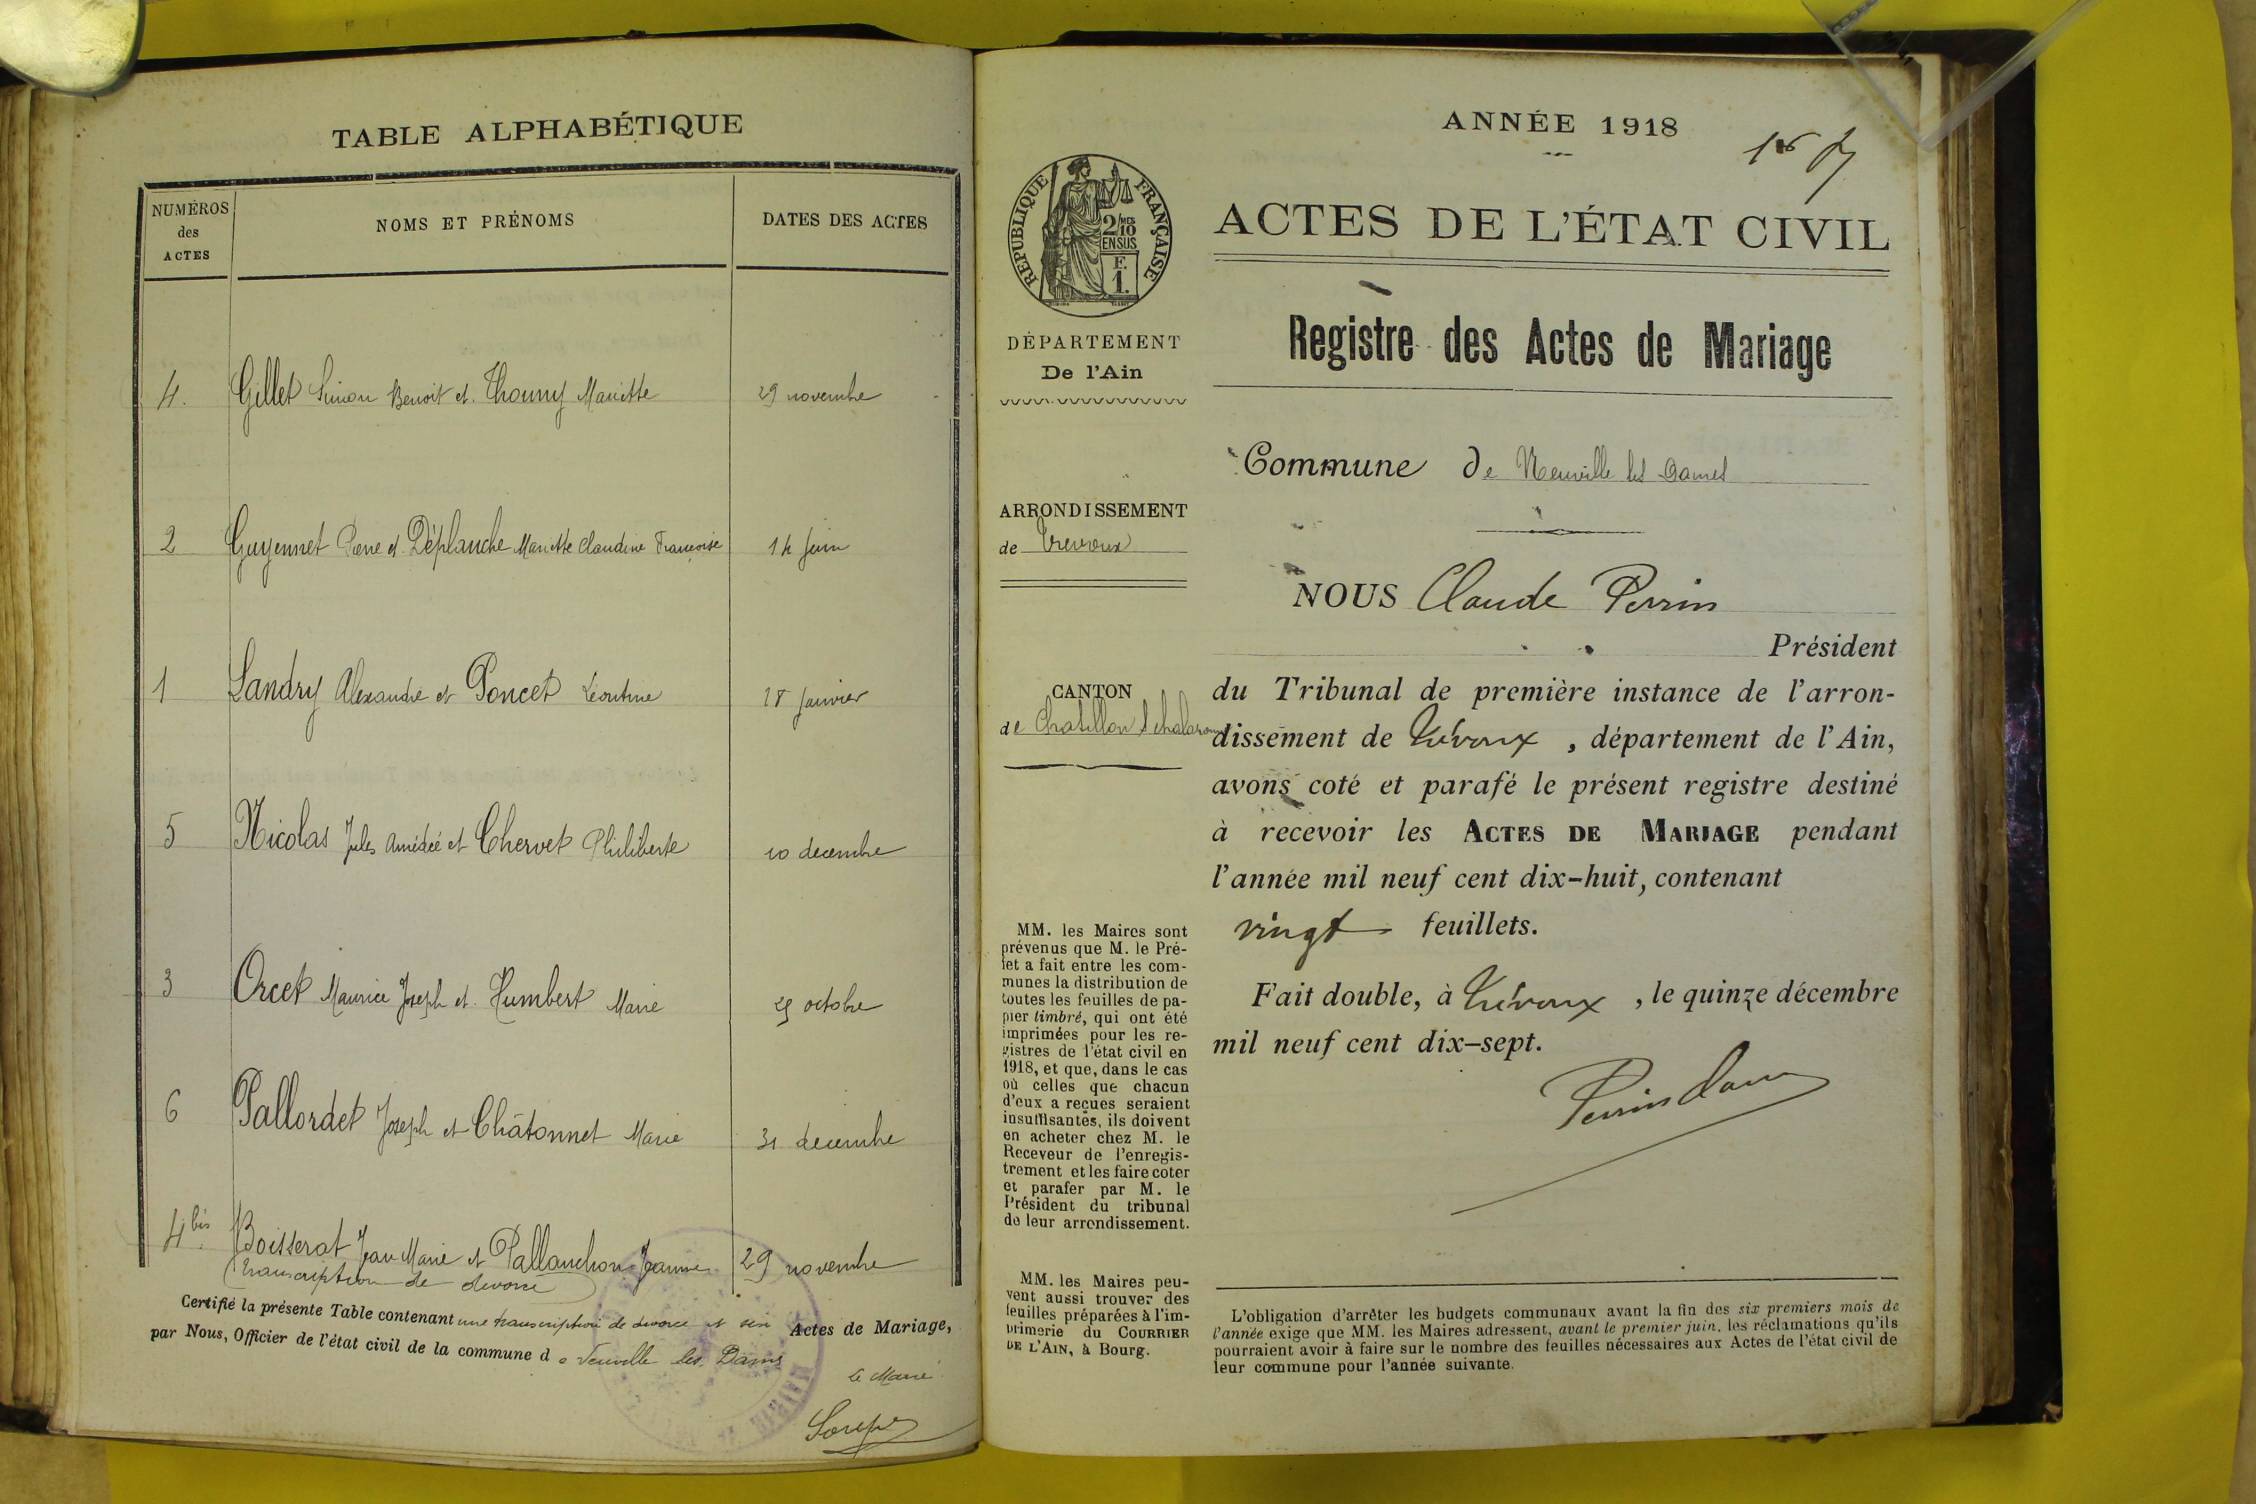 TABLE ALPHABÉTIQUE
NUMÉROS
des
ACTES
NOMS ET PRÉNOMS
DATES DES ACTES
4. Gillet Simon Benoit et Thomy Mariette 29 novembre
2 Guyennet Pierre et Déplanche Mariette Claudine Françoise 14 juin
1 Landry Alexandre et Poncet Léontine 18 janvier
5 Nicolas Jules Amédée et Chervet Philiberte 10 decembre
3 Orcet Maurice Joseph et Humbert Marie 29 octobre
6 Pallordet Joseph et Châtonnet Marie 31 decembre
4 bis. Boisserat Jean Marie et Pallanchon Jeanne 29 novembre
(transcription de divorce)
Certifié la présente Table contenant une transcription de divorce et six Actes de Mariage,
par Nous, Officier de l'état civil de la commune de Neuville les Dames
le Maire
MAIRIE
ANNÉE 1918
RÉPUBLIQUE FRANÇAISE
2/MES
10
EN SUS
F.
1.
ACTES DE L'ÉTAT CIVIL
Registre des Actes de Mariage
DÉPARTEMENT
De l'Ain
Commune de Neuville les Dames
ARRONDISSEMENT
de Trevoux
NOUS Claude Perrin
Président
CANTON
de Chatillon s chalaronne
du Tribunal de première instance de l'arron-
dissement de Trévoux, département de l'Ain,
avons coté et parafé le présent registre destiné
à recevoir les ACTES DE MARIAGE pendant
l'année mil neuf cent dix-huit, contenant
vingt feuillets.
Fait double, à Trévoux, le quinze décembre
mil neuf cent dix-sept.
MM. les Maires sont
prévenus que M. le Pré-
fet a fait entre les com-
munes la distribution de
toutes les feuilles de pa-
pier timbré, qui ont été
imprimées pour les re-
gistres de l'état civil en
1918, et que, dans le cas
où celles que chacun
d'eux a reçues seraient
insuffisantes, ils doivent
en acheter chez M. le
Receveur de l'enregis-
trement et les faire coter
et parafer par M. le
Président du tribunal
de leur arrondissement.
MM. les Maires peu-
vent aussi trouver des
feuilles préparées à l'im-
primerie du COURRIER
DE L'AIN, à Bourg.
L'obligation d'arrêter les budgets communaux avant la fin des six premiers mois de
l'année exige que MM. les Maires adressent, avant le premier juin, les réclamations qu'ils
pourraient avoir à faire sur le nombre des feuilles nécessaires aux Actes de l'état civil de
leur commune pour l'année suivante.